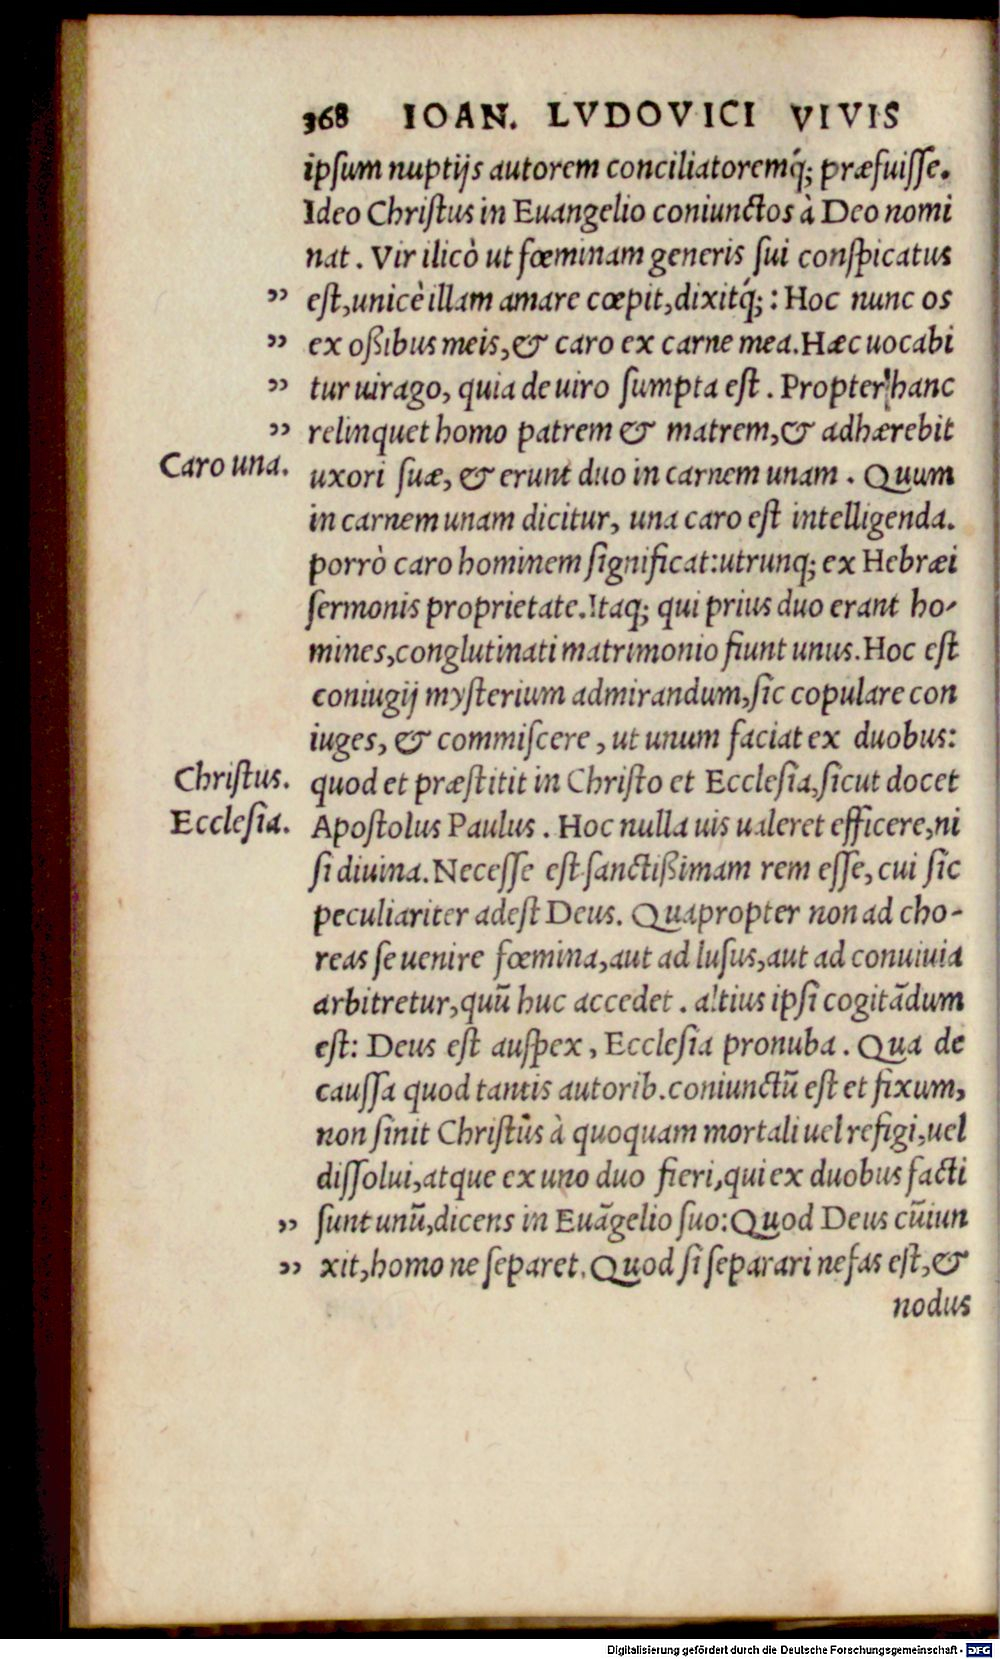 368 IOAN. LVDOVICI VIVIS
ipsum nuptijs autorem conciliatoremq́; præfuisse.
Ideo Christus in Euangelio coniunctos à Deo nomi
nat. Vir ilicò ut fœminam generis sui conspicatus
” est, unicè illam amare cœpit, dixitq́; : Hoc nunc os
” ex oßibus meis, & caro ex carne mea. Hæc uocabi
” tur uirago, quia de uiro sumpta est. Propter hanc
” relinquet homo patrem & matrem, & adhærebit
Caro una. uxori suæ, & erunt duo in carnem unam. Quum
in carnem unam dicitur, una caro est intelligenda.
porrò caro hominem significat: utrunq; ex Hebræi
sermonis proprietate. Itaq; qui prius duo erant ho-
mines, conglutinati matrimonio fiunt unus. Hoc est
coniugij mysterium admirandum, sic copulare con
iuges, & commiscere, ut unum faciat ex duobus:
Christus. quod et præstitit in Christo et Ecclesia, sicut docet
Ecclesia. Apostolus Paulus. Hoc nulla uis ualeret efficere, ni
si diuina. Necesse est sanctißimam rem esse, cui sic
peculiariter adest Deus. Quapropter non ad cho-
reas se uenire fœmina, aut ad lusus, aut ad conuiuia
arbitretur, quũ huc accedet. altius ipsi cogitãdum
est: Deus est auspex, Ecclesia pronuba. Qua de
caussa quod tantis autorib. coniunctũ est et fixum,
non sinit Christus à quoquam mortali uel refigi, uel
dissolui, atque ex uno duo fieri, qui ex duobus facti
” sunt unũ, dicens in Euãgelio suo: Quod Deus cũiun
” xit, homo ne separet. Quod si separari nefas est, &
nodus
Digitalisierung gefördert durch die Deutsche Forschungsgemeinschaft - DFG